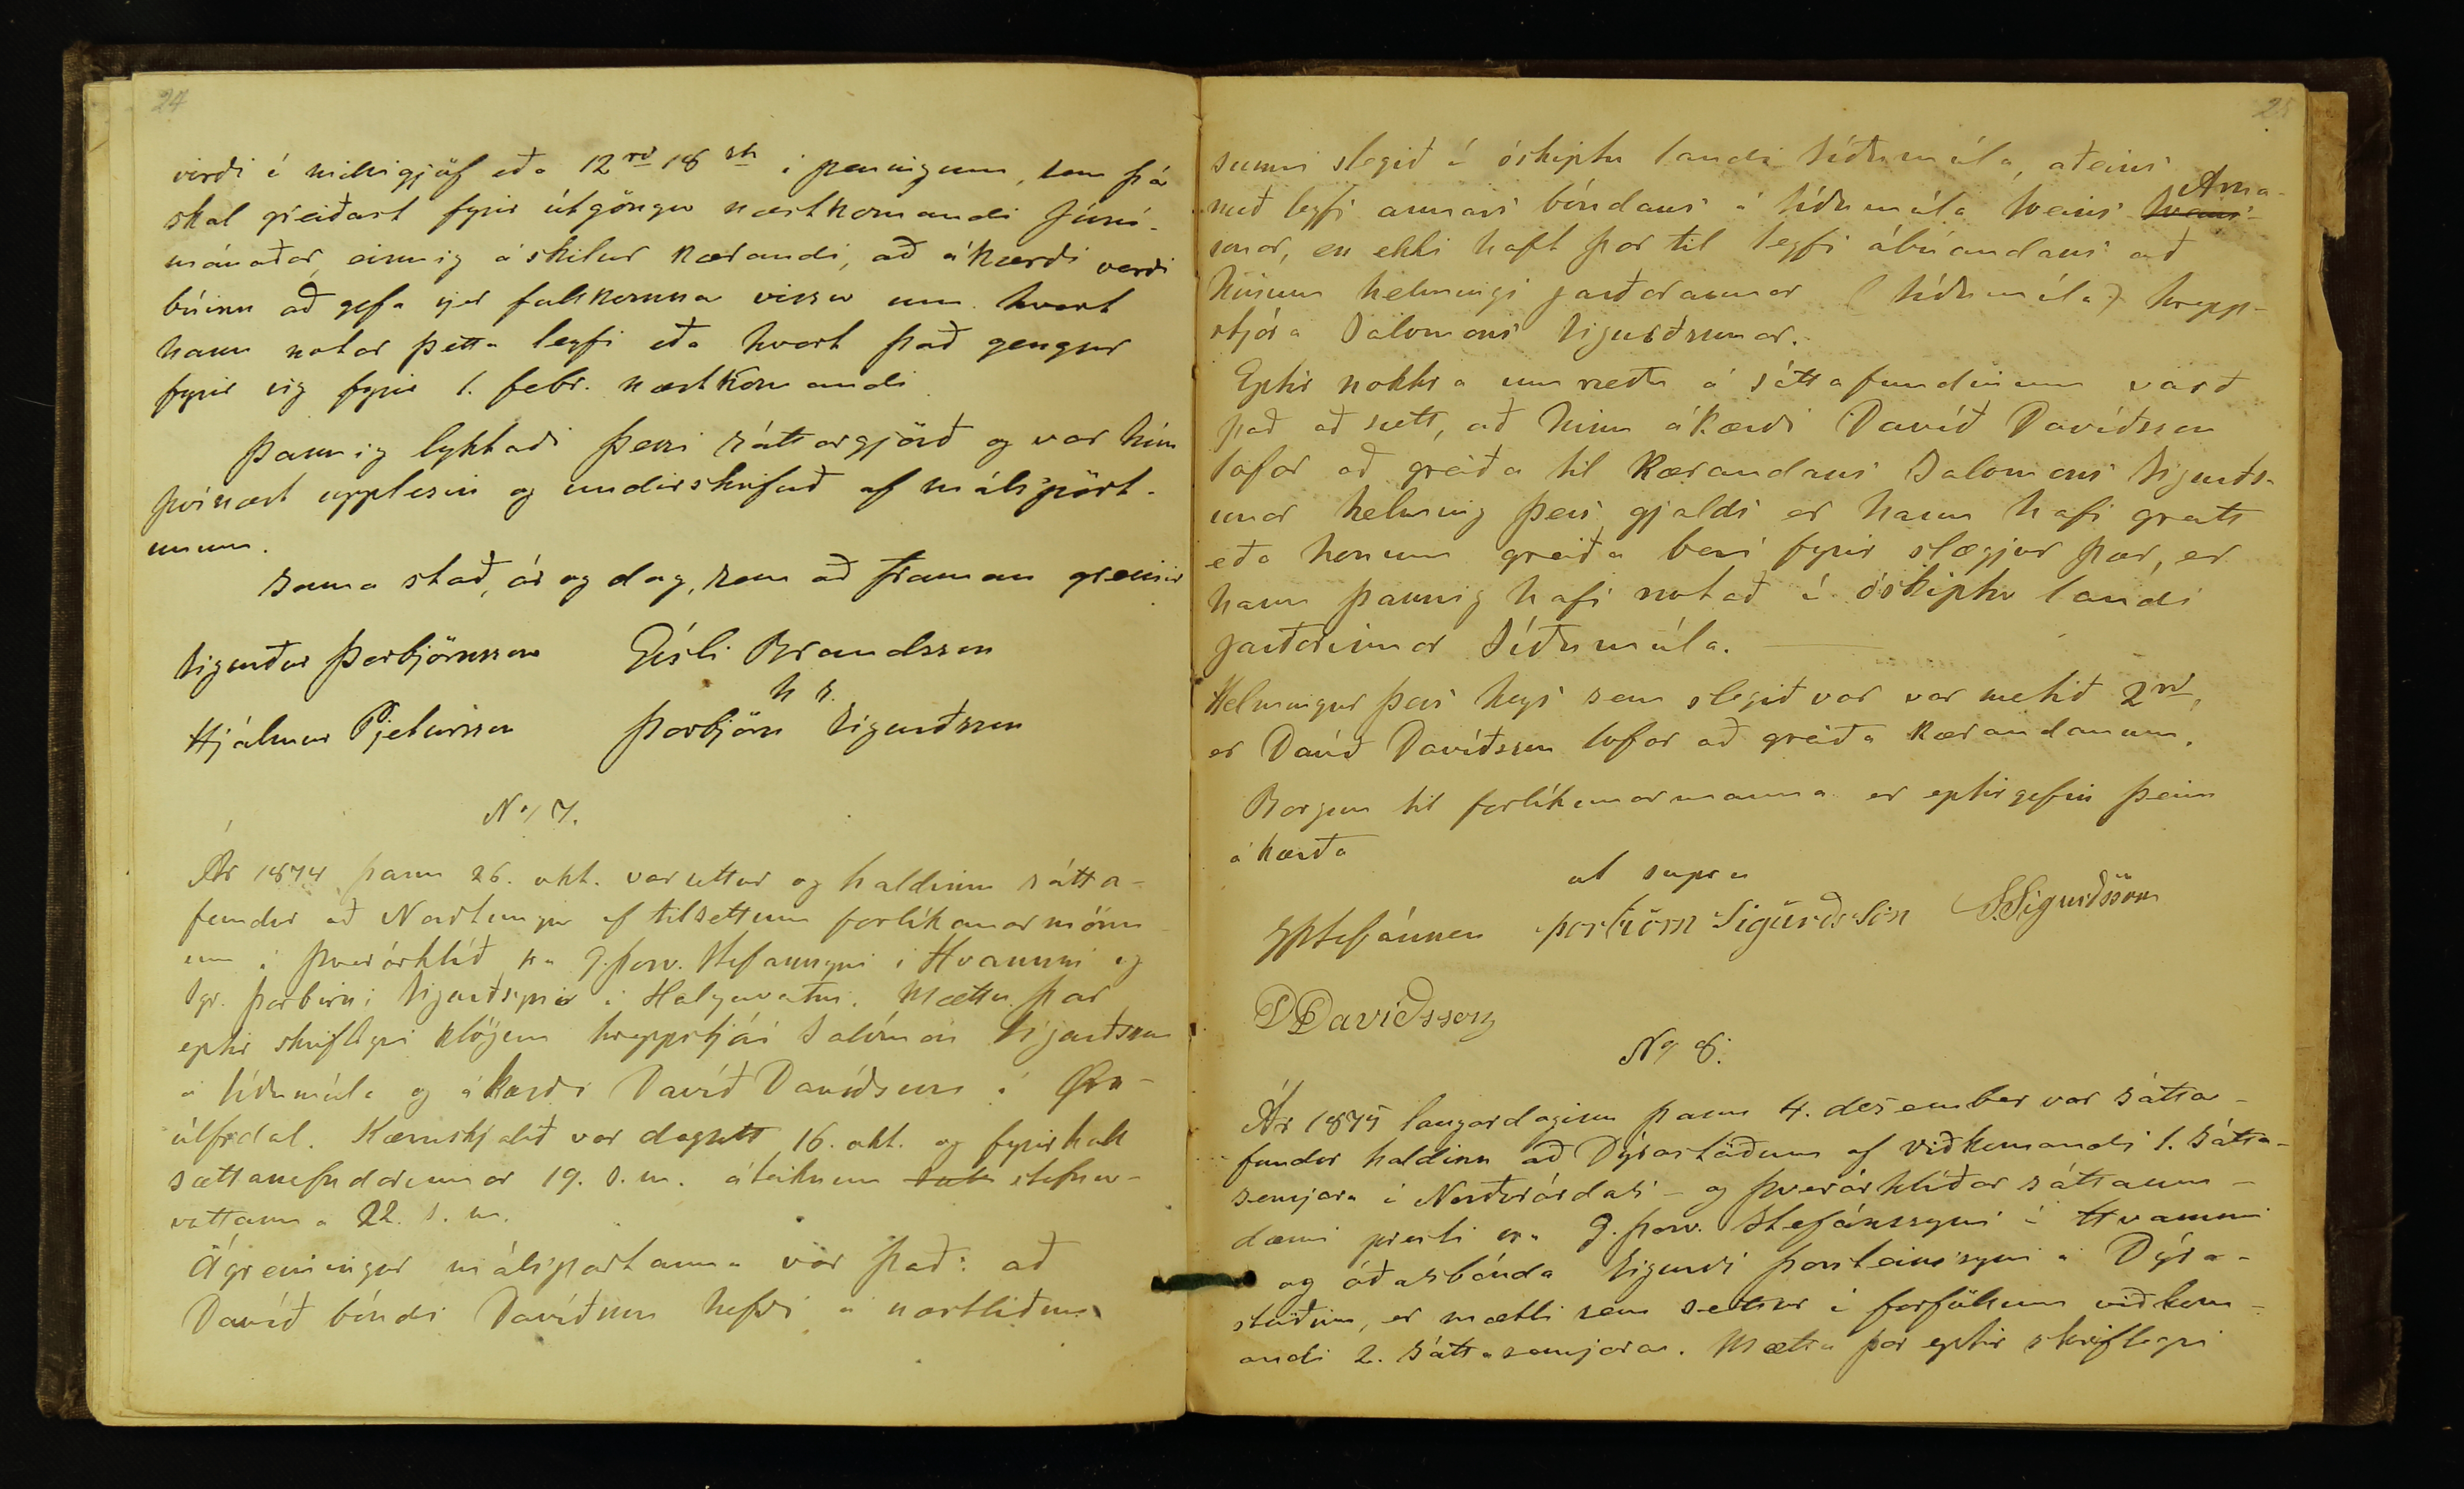 24
virði í milligjöf eða 12 rd 18 sk í peningum, sem þá
skal greiðast fyrir útgöngu næstkomandi Júní-
mánaðar, einnig áskilur kærandi, að ákærði verði
búinn að gefa sjer fullkomna vissu um hvort
hann notar þetta leyfi eða hvort það gengur
fyrir sig fyrir 1. febr. næstkomandi
Þannig lyktaði þessi sáttargjörð og var hún
þvínæst upplesin og undirskrifuð af málspört-
unum.
Sama stað, ár og dag, sem að framan greinir
Sigurður Þorbjörnsson Gísli Brandsson
h s.
Hjálmur Pjetursson Þorbjörn Sigurðsson
No 7.
Ár 1874 þann 26. okt. var settur og haldinn sátta-
fundur að Norðtungu af tilsettum forlíkunarmönn-
um í Þverárhlíð, sra G. Þorv. Stefánssyni í Hvammi og
Sgr. Þorbirni Sigurðssyni á Helgavatni. Mættu þar
eptir skriflegri klögun hreppstjóri Salómon Sigurðsson
á Síðumúla og ákærði Davíð Davíðsson í Örn-
úlfsdal. Kæruskjalið var dagsett 16. okt. og fyrirkall
sættanefndarinnar 19. s. m. áteiknun stefnu-
vottanna 22. s. m.
Ágreiningur málspartanna var það: að
Davíð bóndi Davíðsson hefði á næstliðnu
25
sumri slegið í óskiptu landi Síðumúla, aðeins
Árna-
með leyfi annars bóndans á Síðumúla Sveins Sveins-
sonar, en ekki haft þar til leyfi ábúandans að
hinum helmingi jarðarinnar (Síðumúla) hrepp-
stjóra Salomons Sigurðssonar.
Eptir nokkra umræðu á sáttafundinum varð
það að sætt, að hinn ákærði Davíð Davíðsson
lofar að greiða til kærandans Salomons Sigurðs-
sonar helming þess gjalds er hann hafi greitt
eða honum greiða beri fyrir slægjur þær, er
hann þannig hafi notað í óskiptu landi
jarðarinnar Síðumúla.
Helmingur þess heys sem slegið var var metið 2 rd,
er Davíð Davíðsson lofar að greiða kærandanum.
Borgun til forlíkunarmanna er eptirgefin þeim
ákærða
ut supra
GÞStefánsson Þorbjörn Sigurðsson S. Sigurðsson
D Davíðsson
No 8.
Ár 1875 laugardaginn þann 4. desember var sátta-
fundur haldinn að Dýrastöðum af viðkomandi 1. sátta-
semjara í Norðurárdals- og Þverárhlíðar sáttaum-
dæmi presti sra G. Þorv. Stefánssyni í Hvammi
og óðalsbónda Sigurði Þorsteinssyni á Dýra-
stöðum, er mætti sem settur í forföllum viðkom-
andi 2. sáttasemjara. Mættu þar eptir skriflegri